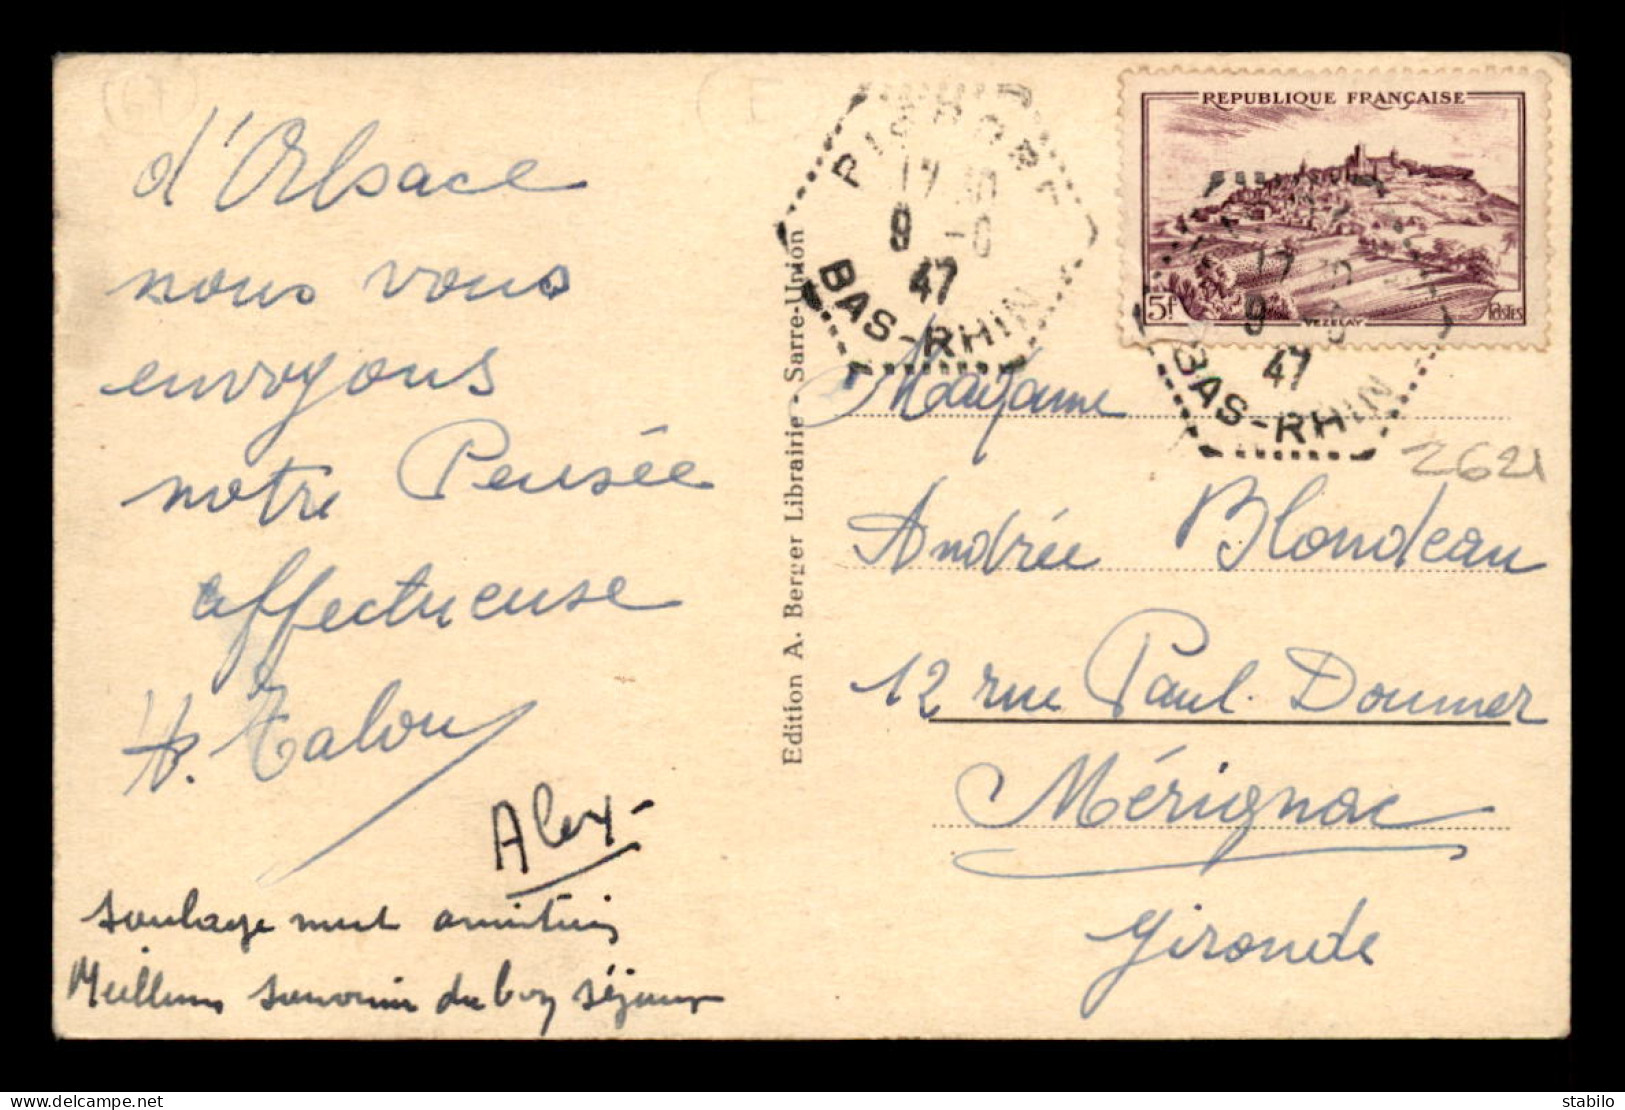 d'Alsace
nous vous
envoyons
notre Pensée
affectueuse
H. Talou
Alex-
amitiés
Meilleurs souvenir du bon séjour
Edition A. Berger Librairie - Sarre-Union
17 30
9 -8
47
BAS-RHIN
REPUBLIQUE FRANÇAISE
5f
VEZELAY
Postes
9
47
BAS-RHIN
2621
Madame
Andrée Blondeau
12 rue Paul. Doumer
Mérignac
Gironde
delcampe.net
stabilo